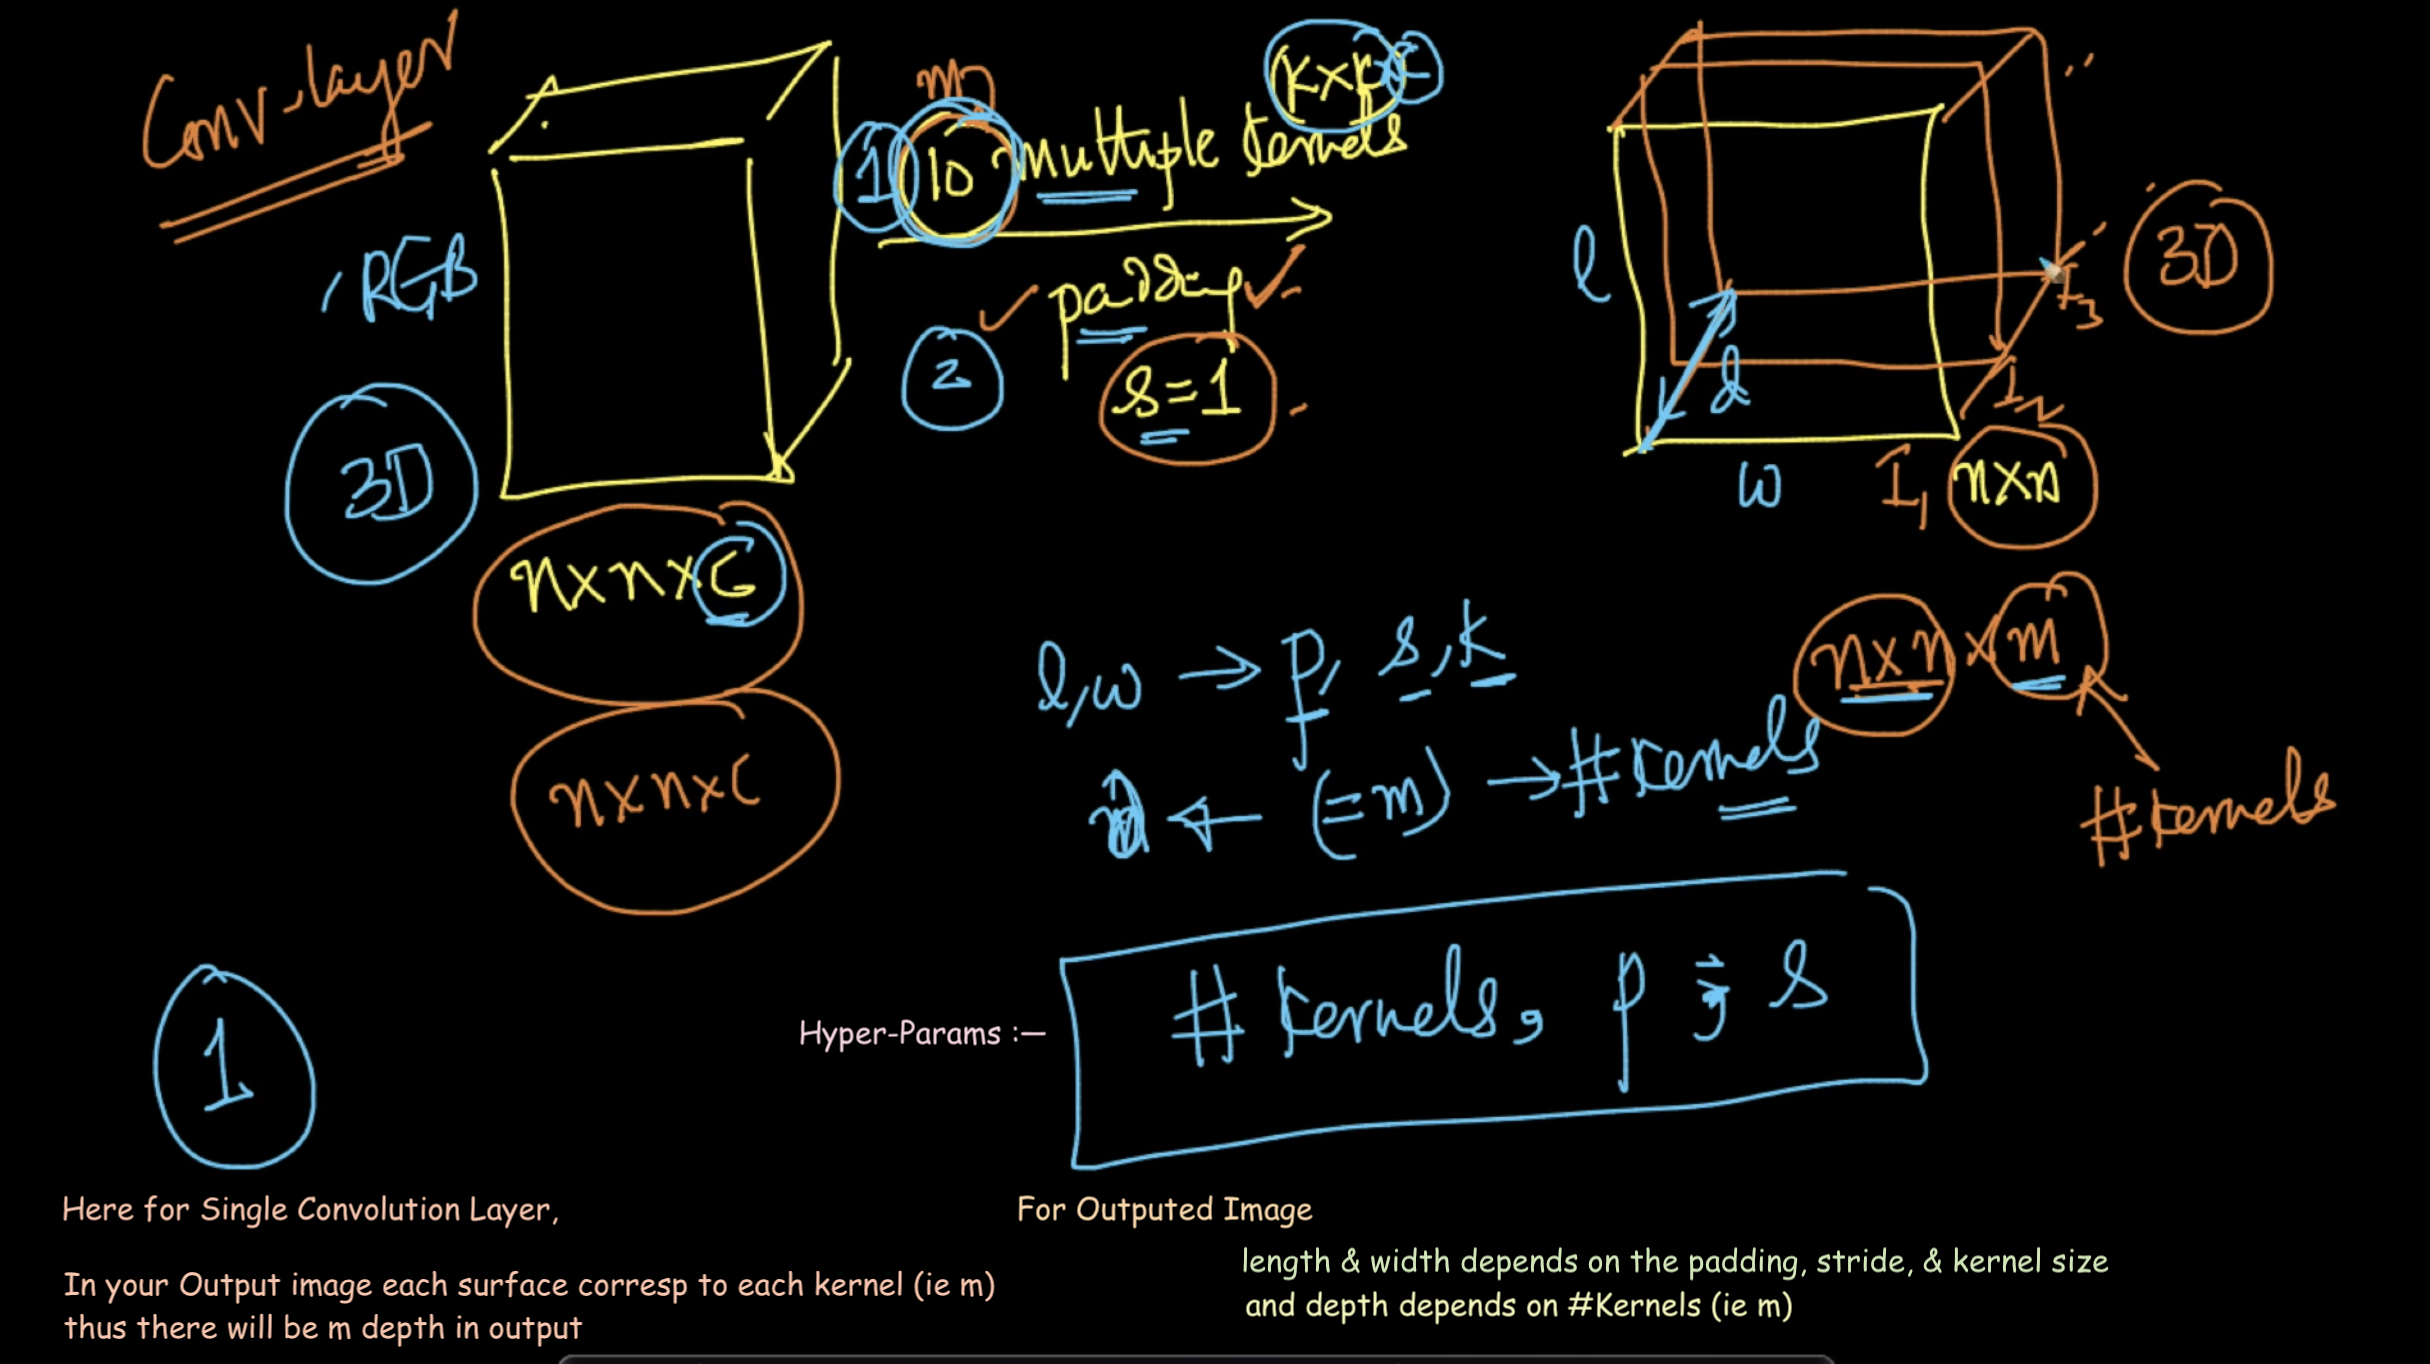 Conv-layer
RGB
3D
n×n×C
n×n×C
m
1 10 multiple kernels
k×k×C
2 padding
s=1
l
w
d
I1 n×n
I2
I3
3D
l,w → p, s, k
d ← (=m) → #kernels
n×n×m
#kernels
1
Hyper-Params :—
# kernels, p, s
Here for Single Convolution Layer,
In your Output image each surface corresp to each kernel (ie m)
thus there will be m depth in output
For Outputed Image
length & width depends on the padding, stride, & kernel size
and depth depends on #Kernels (ie m)